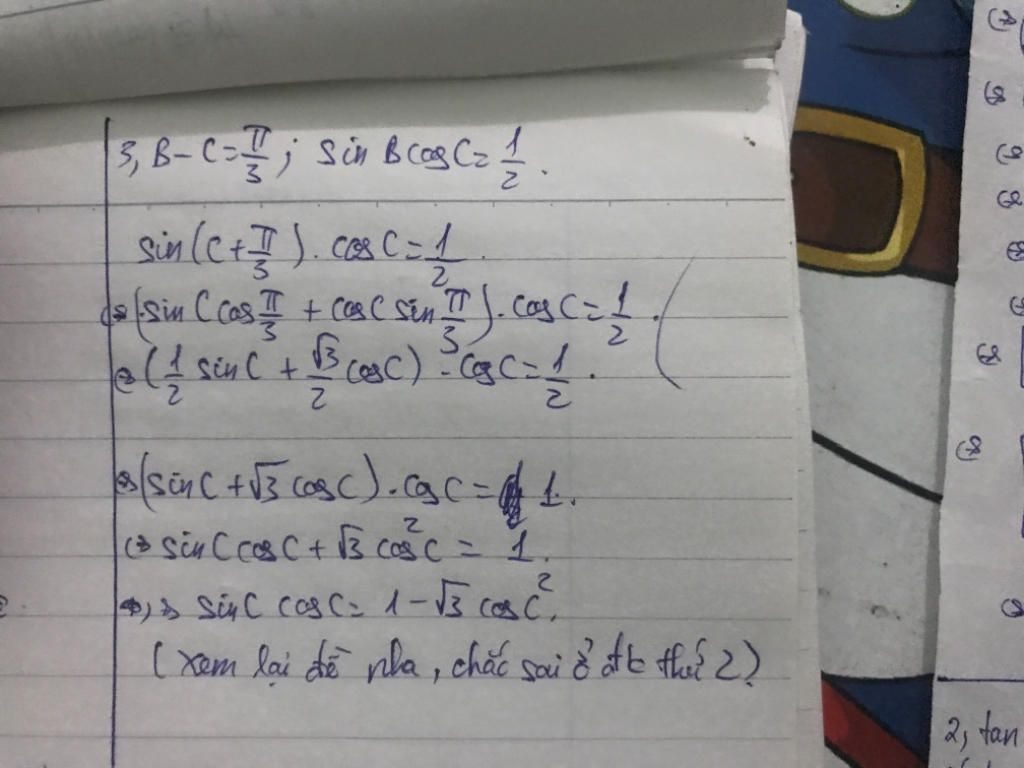 3, B - C = π/3 ; sin B cos C = 1/2 .
sin(C + π/3) . cos C = 1/2 .
⇔ (sin C cos π/3 + cos C sin π/3) . cos C = 1/2 .
⇔ (1/2 sin C + √3/2 cos C) . cos C = 1/2 .
⇔ (sin C + √3 cos C) . cos C = 1 .
⇔ sin C cos C + √3 cos² C = 1 .
⇔ sin C cos C = 1 - √3 cos C² .
(Xem lại đề nha, chắc sai ở đk thứ 2)
2, tan